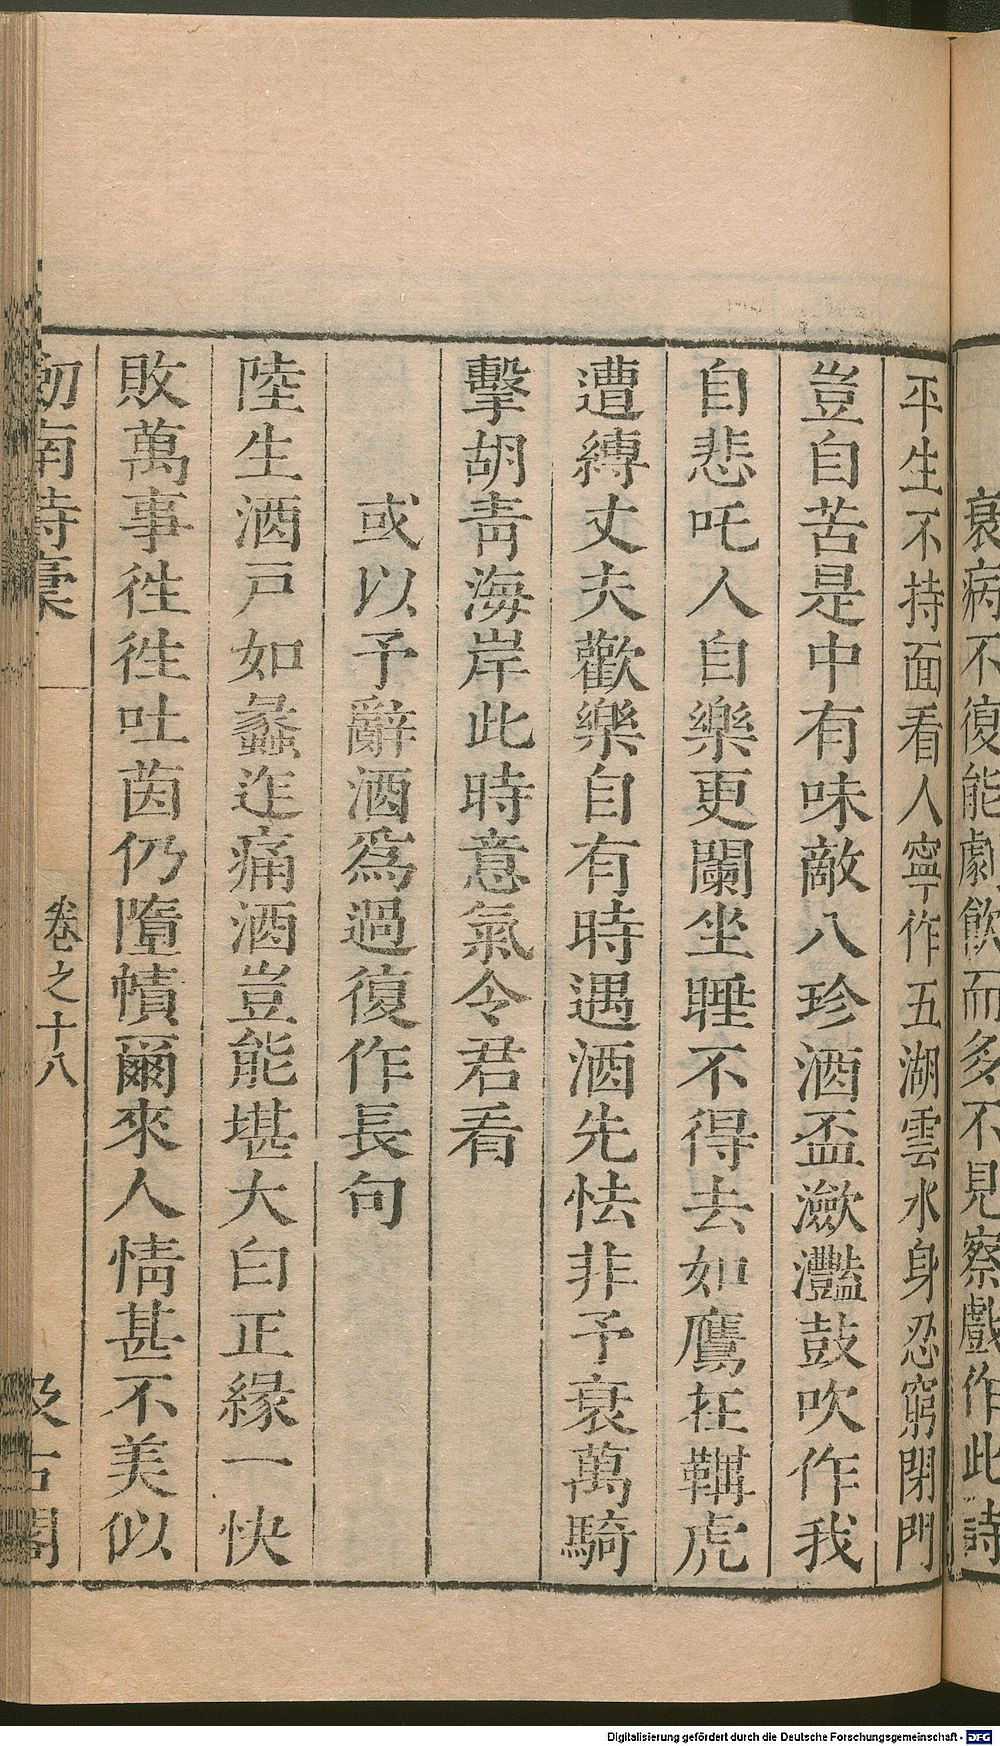 衰病不復能劇飲而多不見察戲作此詩
平生不持面看人寧作五湖雲水身忍窮閉門
豈自苦是中有味敵八珍酒盃瀲灧鼓吹作我
自悲吒人自樂更闌坐睡不得去如鷹在鞲虎
遭縛丈夫歡樂自有時遇酒先怯非予衰萬騎
擊胡青海岸此時意氣令君看
或以予辭酒爲過復作長句
陸生酒戸如蠡迮痛酒豈能堪大白正緣一快
敗萬事徃徃吐茵仍墮幘爾來人情甚不美似
劒南詩稾
卷之十八
汲古閣
Digitalisierung gefördert durch die Deutsche Forschungsgemeinschaft - DFG